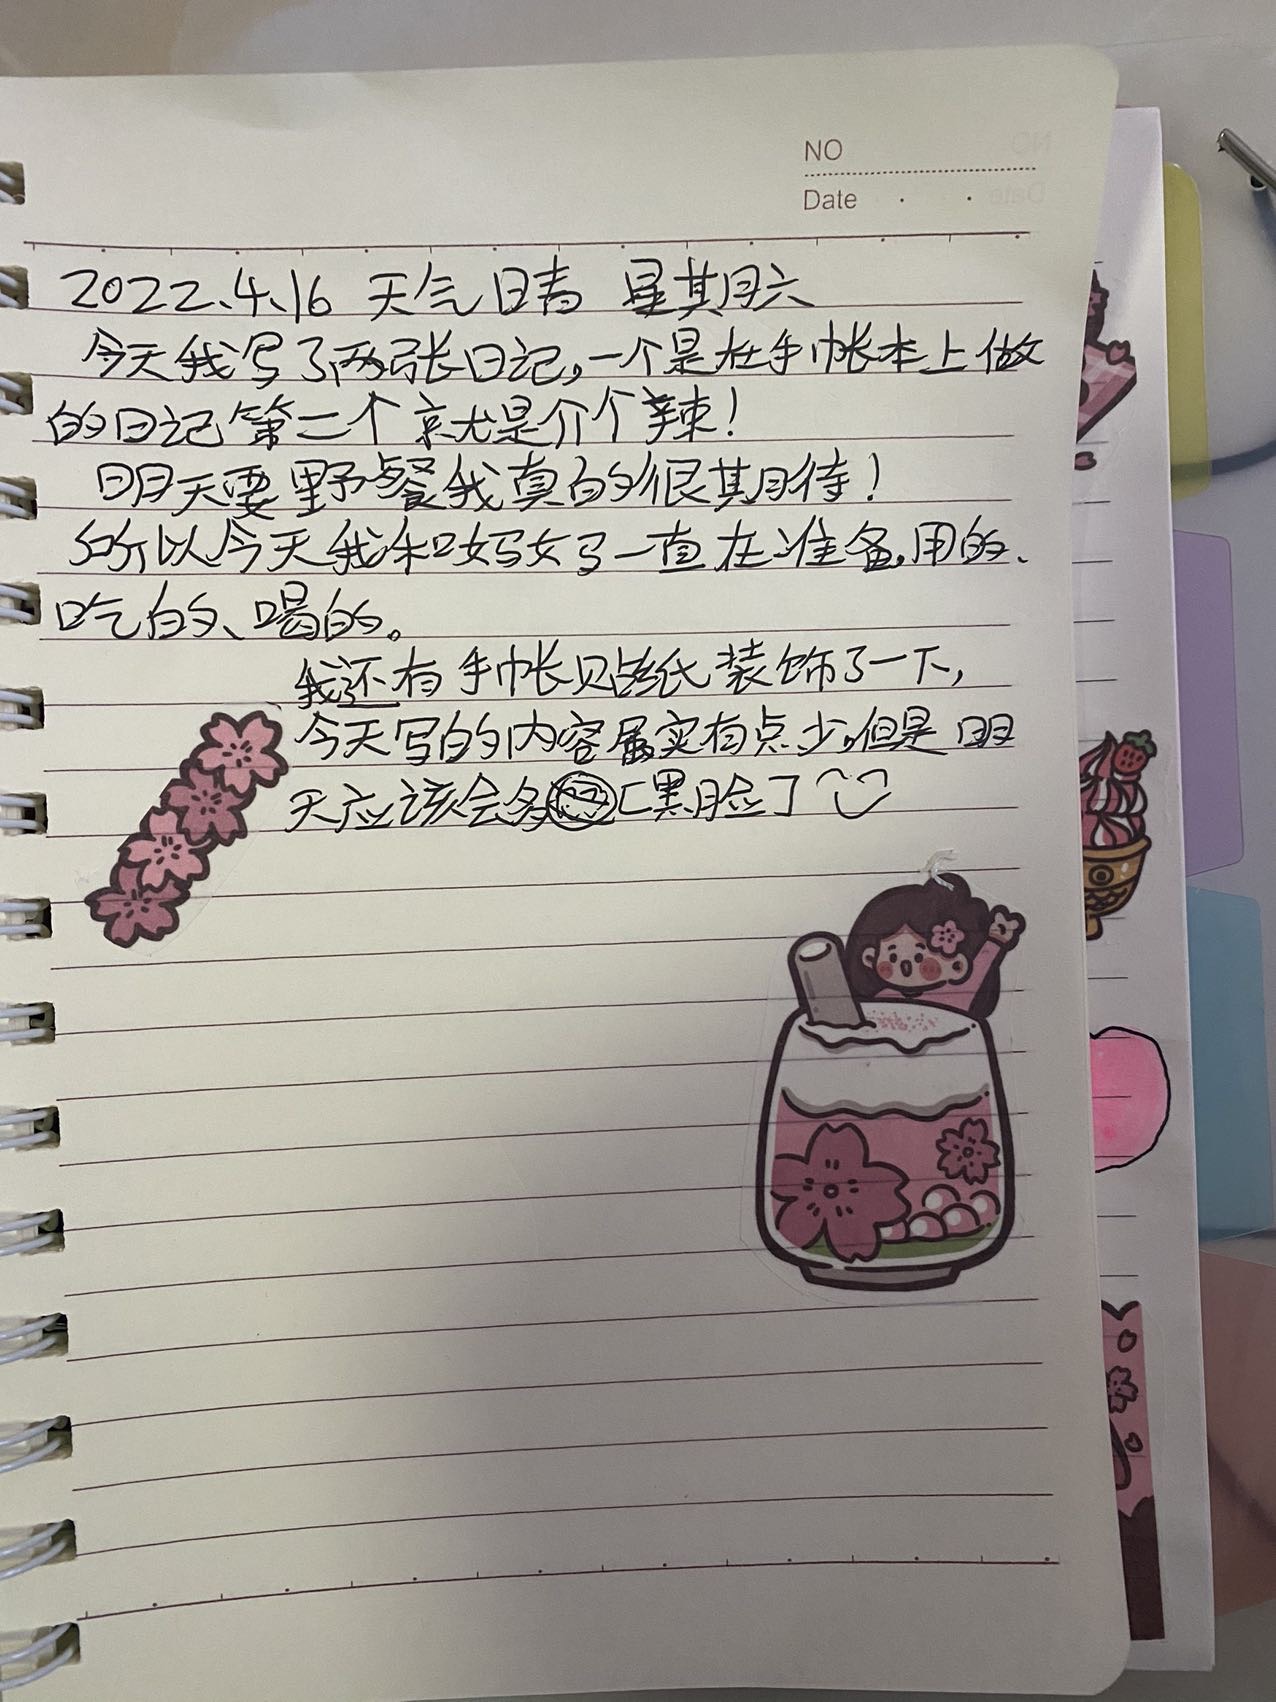 NO
Date
2022.4.16 天气晴 星期六
今天我写了两张日记,一个是在手帐本上做
的日记第二个就是介个辣!
明天要野餐我真的很期待!
所以今天我和妈妈一直在准备,用的、
吃的、喝的。
我还有手帐贴纸装饰了一下,
今天写的内容属实有点少。但是明
天应该会多 黑脸了